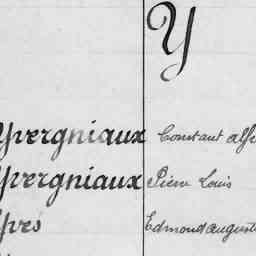 Y
Yvergniaux Constant Alf
Yvergniaux Pierre Louis
Yves Edmond Auguste